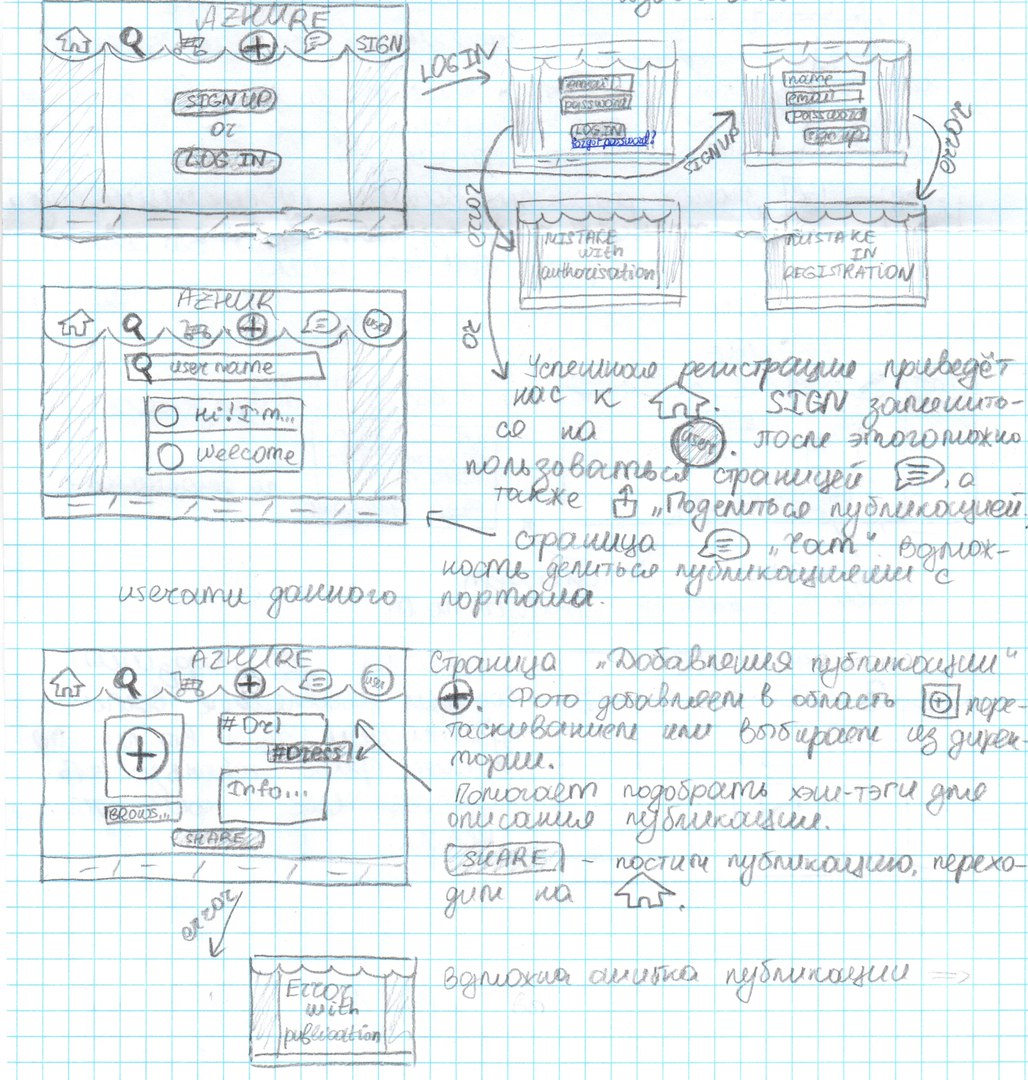 AZHURE
SIGN
SIGN UP
or
LOG IN
LOGIN
email
password
LOG IN
forgot password?
SIGNUP
name
email
password
sign up
error
error
MISTAKE
with
authorisation
MISTAKE
IN
REGISTRATION
or
AZHUR
user
user name
Hi! I'm...
welcome
Успешная регистрация приведёт
нас к . SIGN заменить-
ся на user. После этого можно
пользоваться страницей , а
также „Поделиться публикацией.
Страница „Чат“. Возмож-
ность делиться публикациями с
userами данного портала.
AZHURE
user
#Dre
#Dress
Info...
BROWS...
SHARE
Страница „Добавления публикации“
. Фото добавляем в область пере-
таскиванием или выбираем из дирек-
тории.
Помогает подобрать хэш-тэги для
описания публикации.
SHARE – постим публикацию, перехо-
дим на .
error
Error
with
publication
Возможна ошибка публикации =>